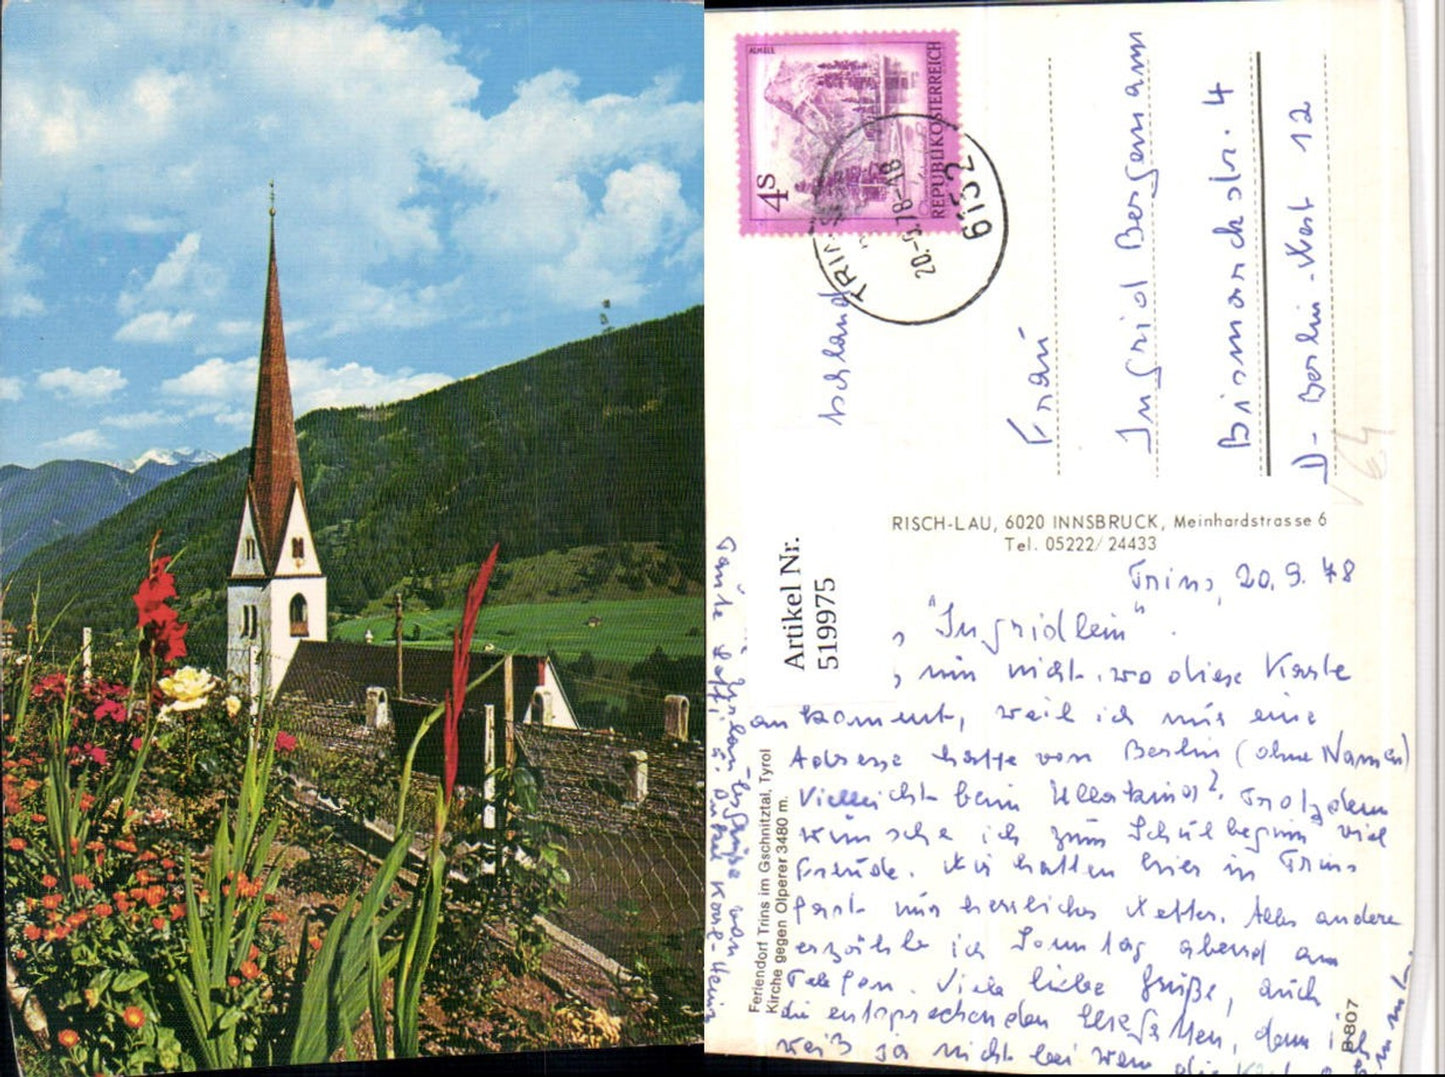 ALMSEE
4 S
REPUBLIK ÖSTERREICH
6152
20.-9.78-18
Frau
Ingrid Bergemann
Bismarckstr. 4
D-Berlin-West 12
64
RISCH-LAU, 6020 INNSBRUCK, Meinhardstrasse 6
Tel. 05222/24433
Artikel Nr.
519975
Feriendorf Trins im Gschnitztal, Tyrol
Kirche gegen Olperer 3480 m.
B-807
Trins, 20.9.78
"Ingridlein"
nicht, wo diese Karte
ankommt, weil ich nur eine
Adresse hatte von Berlin (ohne Namen)
Vielleicht beim Trotzdem
wünsche ich zum Schulbeginn viel
Freude. Wir hatten hier in Trins
fast nur herrliches Wetter. Alles andere
erzähle ich Sonntag abend am
Telefon. Viele liebe Grüße, auch
die entsprechenden denn ich
weiß ja nicht bei wem die
Tante u. Onkel Karl-Heinz